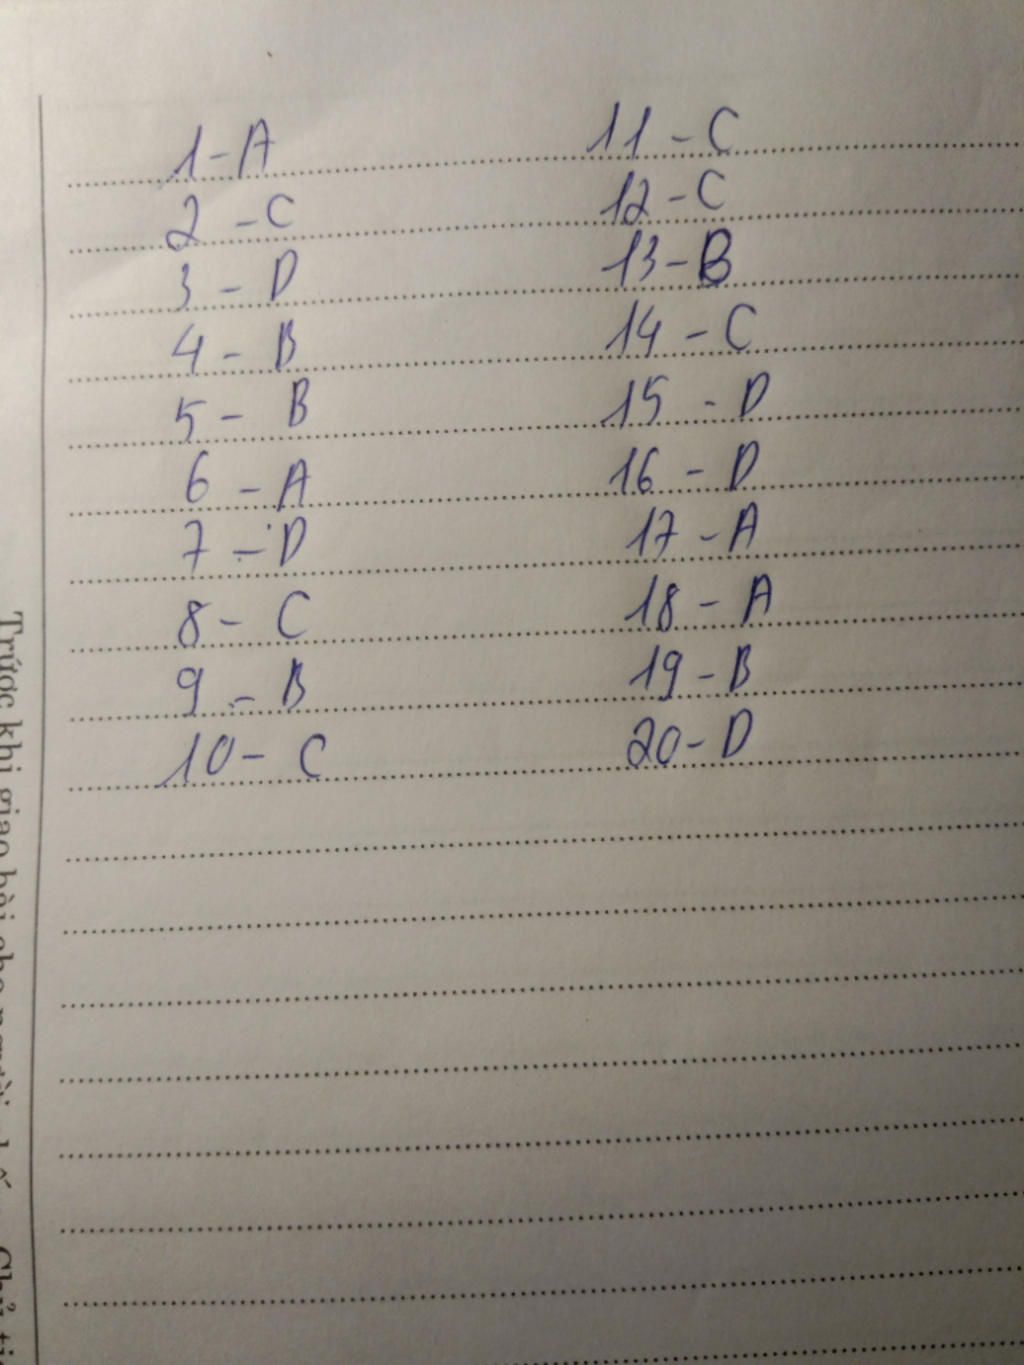 1-A
2 - C
3 - D
4 - B
5 - B
6 - A
7 - D
8 - C
9 - B
10 - C
11 - C
12 - C
13 - B
14 - C
15 - D
16 - D
17 - A
18 - A
19 - B
20 - D
Trước khi giao bài cho người